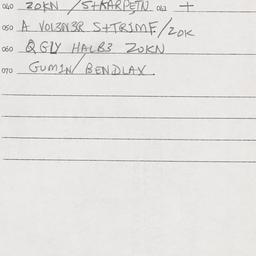 040 ZOKN /S+KARPETN 042 +
050 A VOL3N3R S+TRIMF/ZOK
060 Q GLY HALB3 ZOKN
070 GUM1N/BENDLAX.